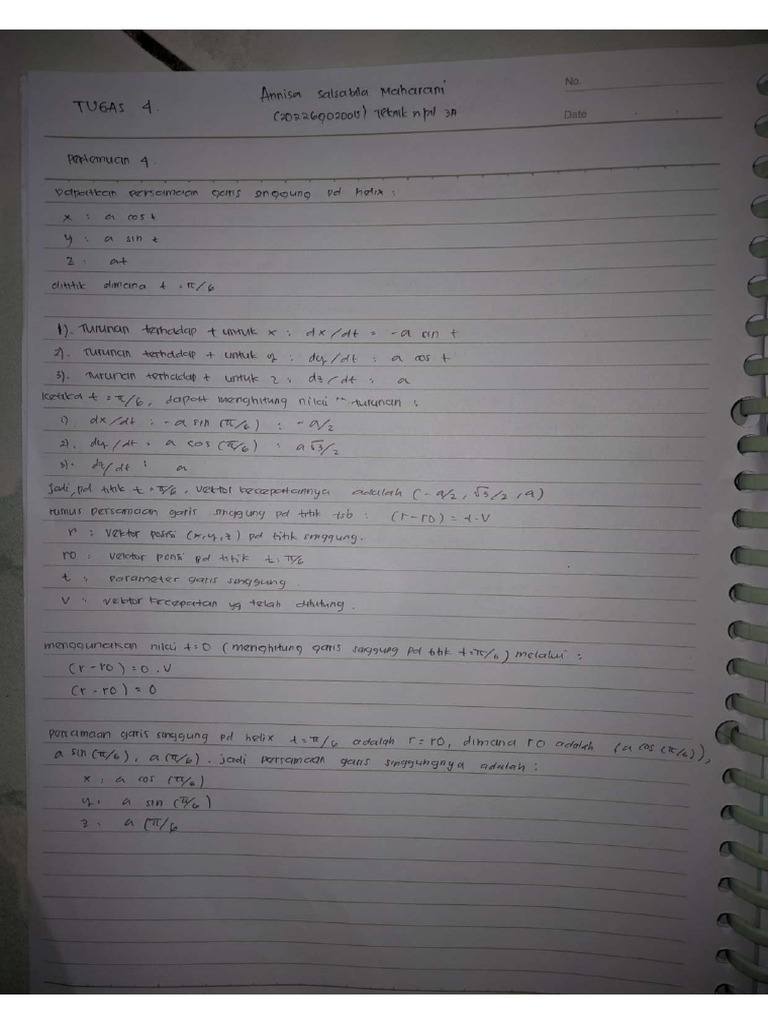 TUGAS 4.
Annisa Salsabila Maharani
Teknik npl 3A
No.
Date
Pertemuan 4.
Dapatkan persamaan garis singgung pd helix :
x : a cos t
y : a sin t
z : at
dititik dimana t = π/6
1). Turunan terhadap t untuk x : dx/dt = -a sin t
2). Turunan terhadap t untuk y : dy/dt : a cos t
3). Turunan terhadap t untuk z : dz/dt : a
Ketika t = π/6, dapat menghitung nilai" turunan :
1) dx/dt : -a sin (π/6) : -a/2
2). dy/dt : a cos (π/6) : a√3/2
3). dz/dt : a
Jadi, pd titik t = π/6, vektor kecepatannya adalah (-a/2, √3/2, a)
rumus persamaan garis singgung pd titik tsb : (r-r0) = t.V
r : vektor posisi (x,y,z) pd titik singgung.
r0 : vektor posisi pd titik t: π/6
t : parameter garis singgung.
V : vektor kecepatan yg telah dihitung.
menggunakan nilai t=0 (menghitung garis singgung pd titik t=π/6) melalui :
(r-r0) = 0.V
(r-r0) = 0
persamaan garis singgung pd helix t=π/6 adalah r=r0, dimana r0 adalah (a cos (π/6)),
a sin(π/6), a(π/6). jadi persamaan garis singgungnya adalah :
x : a cos (π/6)
y : a sin (π/6)
z : a (π/6